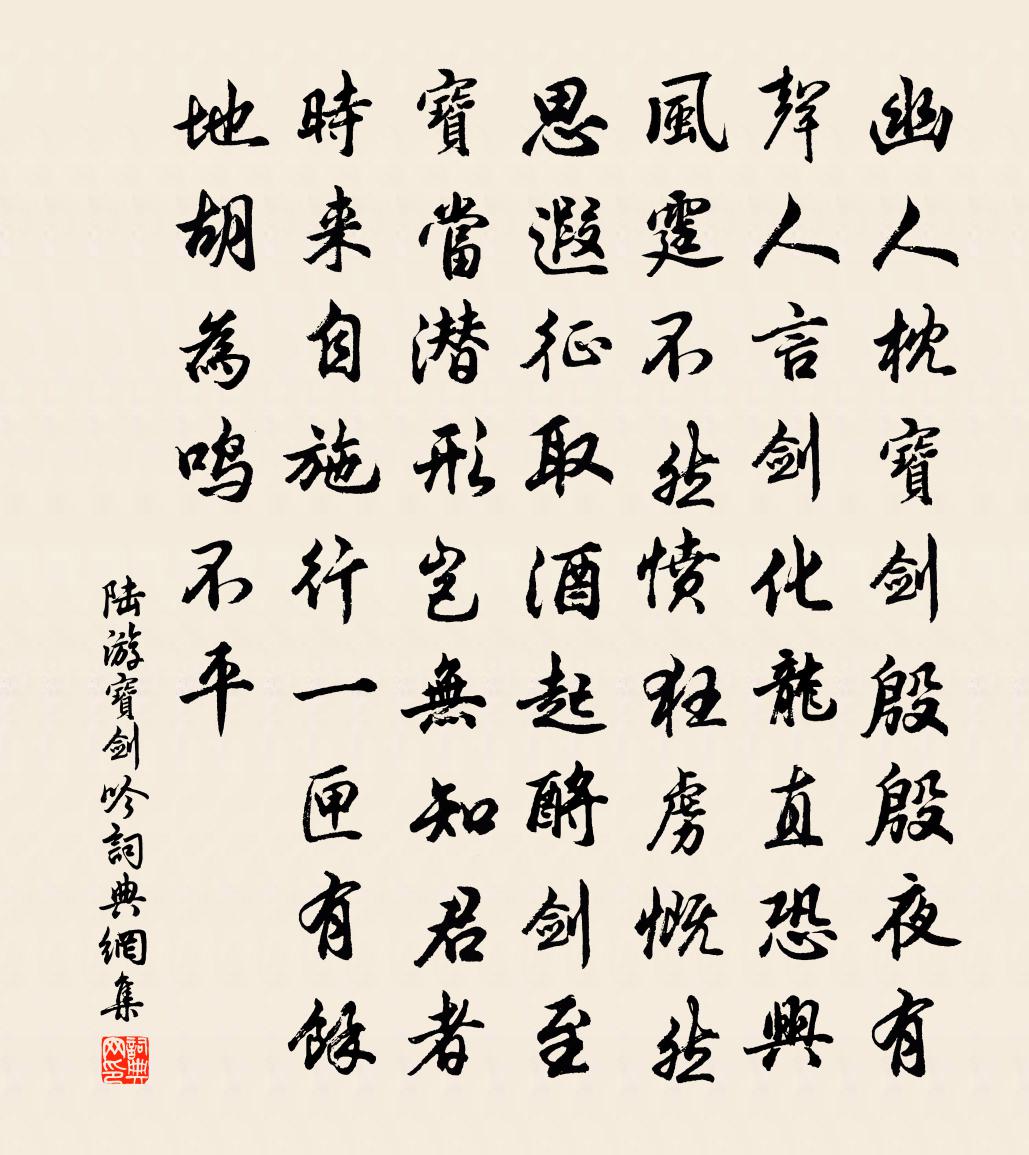 幽人枕寶劍殷殷夜有
聲人言劍化龍直恐興
風霆不然憤狂虜慨然
思遐征取酒起酹劍至
寶當潜形豈無知君者
時来自施行一匣有餘
地胡為鳴不平
陆游寶劍吟詞典網集
詞典网印